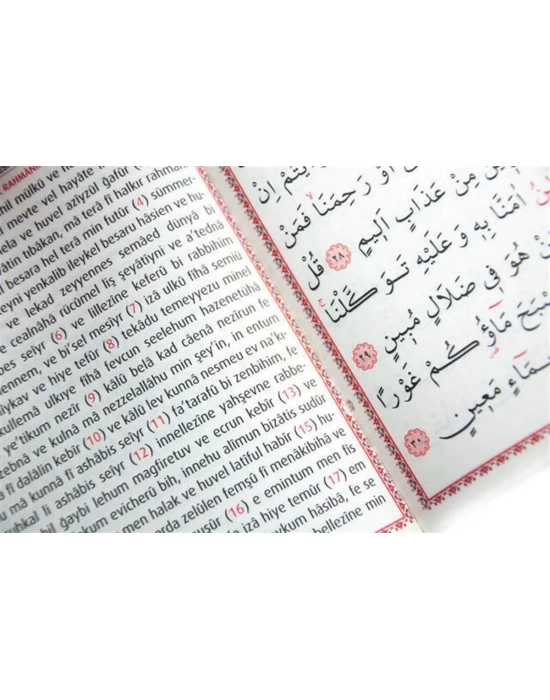 RAHMAN
mülkü ve
mevte vel hayâte
ve huvel azîyzül gafûr
tıbâkan, mâ terâ fî halkır rahmân
besara hel terâ min futûr (4) sümmer-
yenkalib ileykel besaru hâsien ve hu-
ve lekad zeyyennes semâed dünyâ bi
cealnâhâ rücûmel liş şeyâtîyni ve a'tednâ
seîyr (6) ve lillezîne keferû bi rabbihim
ve bi'sel masîyr (7) izâ ulkû fîhâ semiû
ve hiye tefûr (8) tekâdu temeyyezu minel
kullemâ ulkıye fîhâ fevcun seelehum hazenetühâ
e'tikum nezîr (9) kâlû belâ kad câenâ nezîrun fe
zebnâ ve kulnâ mâ nezzelallâhu min şey'in, in entum
fî dalâlin kebîr (10) ve kâlû lev kunnâ nesmeu ev na'k-
mâ kunnâ fî ashâbis seîyr (11) fa'terafû bi zenbihim, fe
uhkal li ashâbis seîyr (12) innellezîne yahşevne rabbe-
bil ğaybi lehum magfiretuv ve ecrun kebîr (13) ve
kum evicherû bih, innehu alîmun bizâtis sudûr
men halak ve huvel latîful habîr (15) hu-
arda zelûlen femşû fî menâkibihâ ve
nuşûr (16) e emintum men fis
izâ hiye temûr (17) em
aykum hâsibâ, fe se
bellezîne min
اِنْ
اَوْ رَحِمَنَا فَمَنْ
مِنْ عَذَابٍ اَلٖيمٍ ﴿٢٨﴾ قُلْ
اٰمَنَّا بِهٖ وَعَلَيْهِ تَوَكَّلْنَا
هُوَ فٖي ضَلَالٍ مُبٖينٍ ﴿٢٩﴾
مَٓاؤُكُمْ غَوْرًا
مَعٖينٍ ﴿٣٠﴾